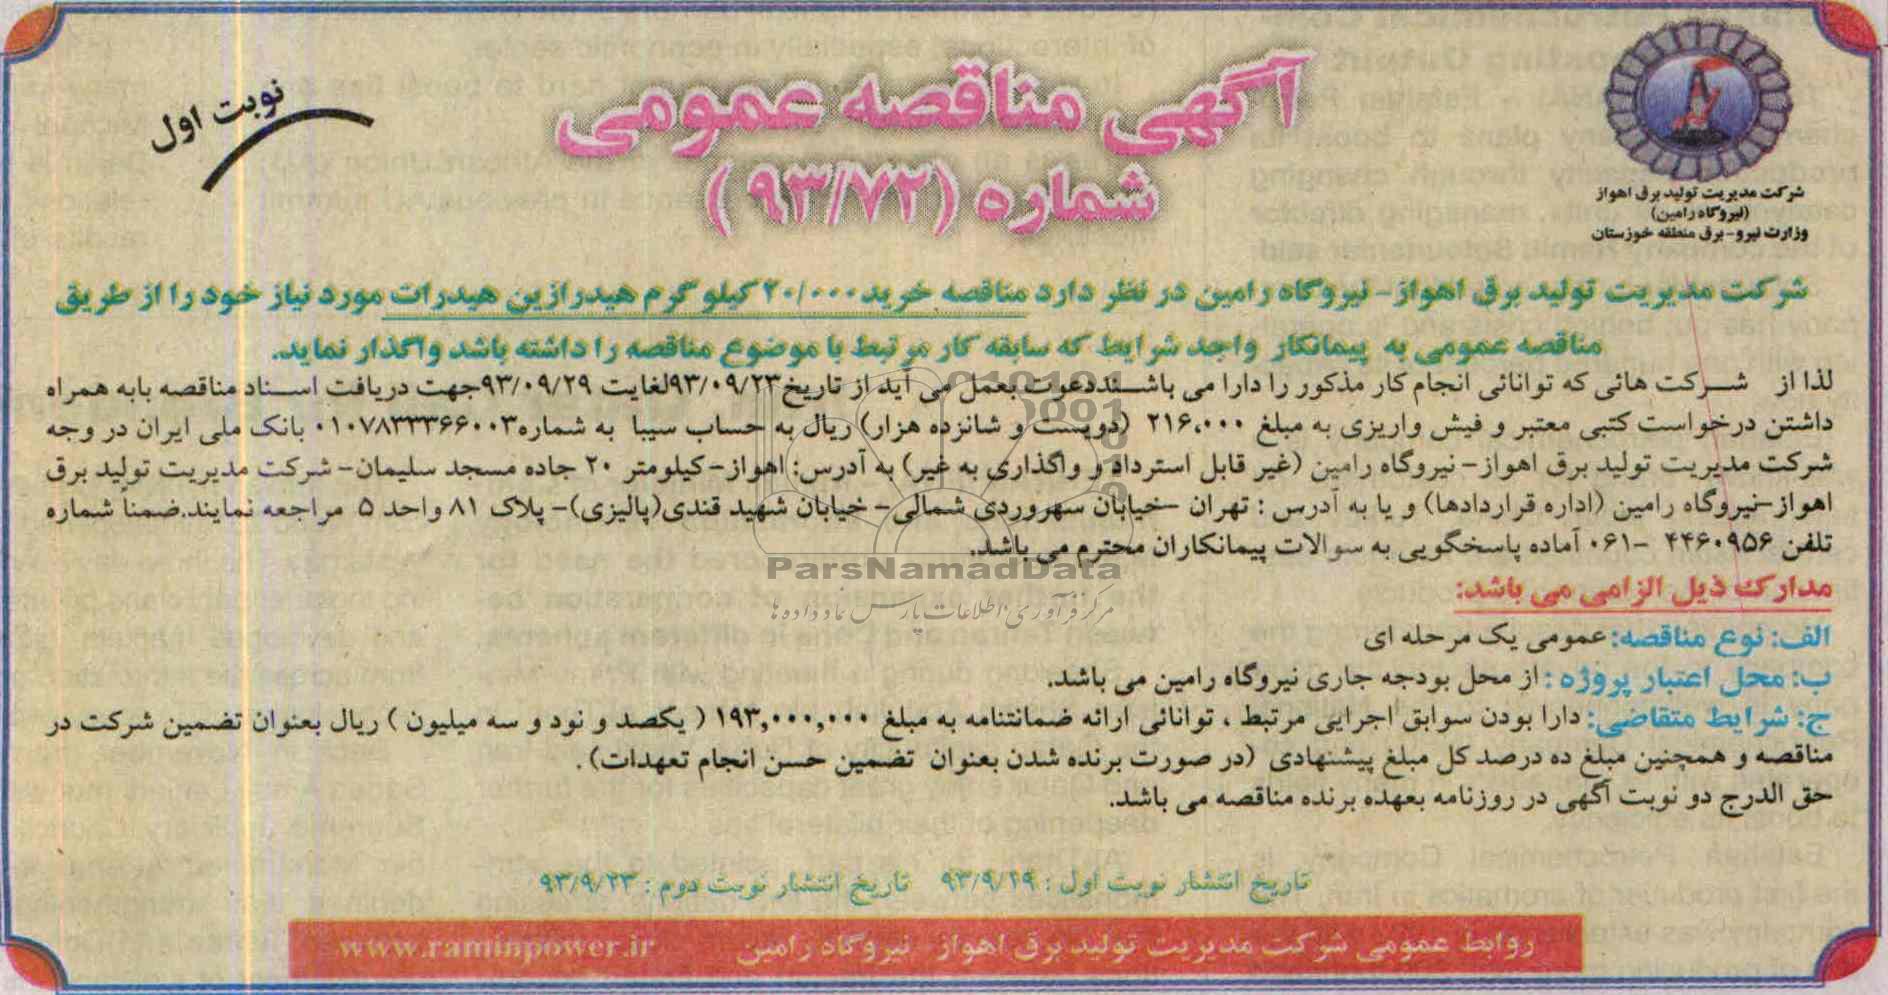 آگهی مناقصه عمومی
شماره (۹۳/۷۲)
نوبت اول
شرکت مدیریت تولید برق اهواز
(نیروگاه رامین)
وزارت نیرو-برق منطقه خوزستان
شرکت مدیریت تولید برق اهواز- نیروگاه رامین در نظر دارد مناقصه خرید ۲۰/۰۰۰ کیلو گرم هیدرازین هیدرات مورد نیاز خود را از طریق
مناقصه عمومی به پیمانکار واجد شرایط که سابقه کار مرتبط با موضوع مناقصه را داشته باشد واگذار نماید.
لذا از شرکت هائی که توانائی انجام کار مذکور را دارا می باشند دعوت بعمل می آید از تاریخ ۹۳/۰۹/۲۳ لغایت ۹۳/۰۹/۲۹ جهت دریافت اسناد مناقصه بابه همراه
داشتن درخواست کتبی معتبر و فیش واریزی به مبلغ ۲۱۶،۰۰۰ (دویست و شانزده هزار) ریال به حساب سیبا به شماره ۰۱۰۷۸۳۳۳۶۶۰۰۳ بانک ملی ایران در وجه
شرکت مدیریت تولید برق اهواز- نیروگاه رامین (غیر قابل استرداد و واگذاری به غیر) به آدرس: اهواز-کیلومتر ۲۰ جاده مسجد سلیمان- شرکت مدیریت تولید برق
اهواز-نیروگاه رامین (اداره قراردادها) و یا به آدرس : تهران -خیابان سهروردی شمالی- خیابان شهید قندی(پالیزی)- پلاک ۸۱ واحد ۵ مراجعه نمایند.ضمناً شماره
تلفن ۴۴۶۰۹۵۶ -۰۶۱ آماده پاسخگویی به سوالات پیمانکاران محترم می باشد.
ParsNamadData
مرکز فرآوری اطلاعات پارس نماد داده ها
مدارک ذیل الزامی می باشد:
الف: نوع مناقصه: عمومی یک مرحله ای
ب: محل اعتبار پروژه : از محل بودجه جاری نیروگاه رامین می باشد.
ج: شرایط متقاضی: دارا بودن سوابق اجرایی مرتبط ، توانائی ارائه ضمانتنامه به مبلغ ۱۹۳,۰۰۰,۰۰۰ ( یکصد و نود و سه میلیون ) ریال بعنوان تضمین شرکت در
مناقصه و همچنین مبلغ ده درصد کل مبلغ پیشنهادی (در صورت برنده شدن بعنوان تضمین حسن انجام تعهدات) .
حق الدرج دو نوبت آگهی در روزنامه بعهده برنده مناقصه می باشد.
تاریخ انتشار نوبت اول : ۹۳/۹/۱۹ تاریخ انتشار نوبت دوم : ۹۳/۹/۲۳
روابط عمومی شرکت مدیریت تولید برق اهواز نیروگاه رامین www.raminpower.ir